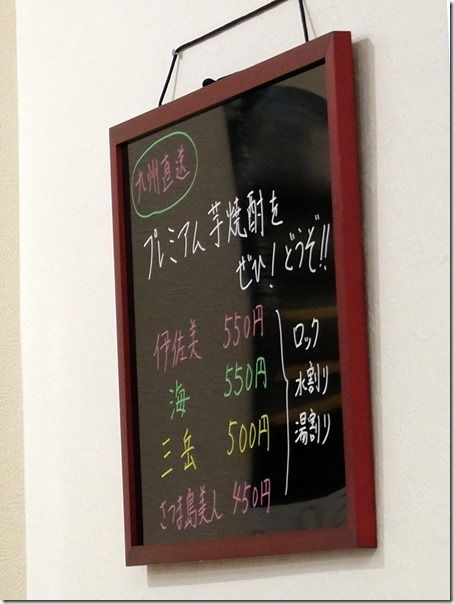 九州直送
プレミアム芋焼酎を
ぜひ!どうぞ!!
伊佐美 550円
海 550円
三岳 500円
さつま島美人 450円
ロック
水割り
湯割り